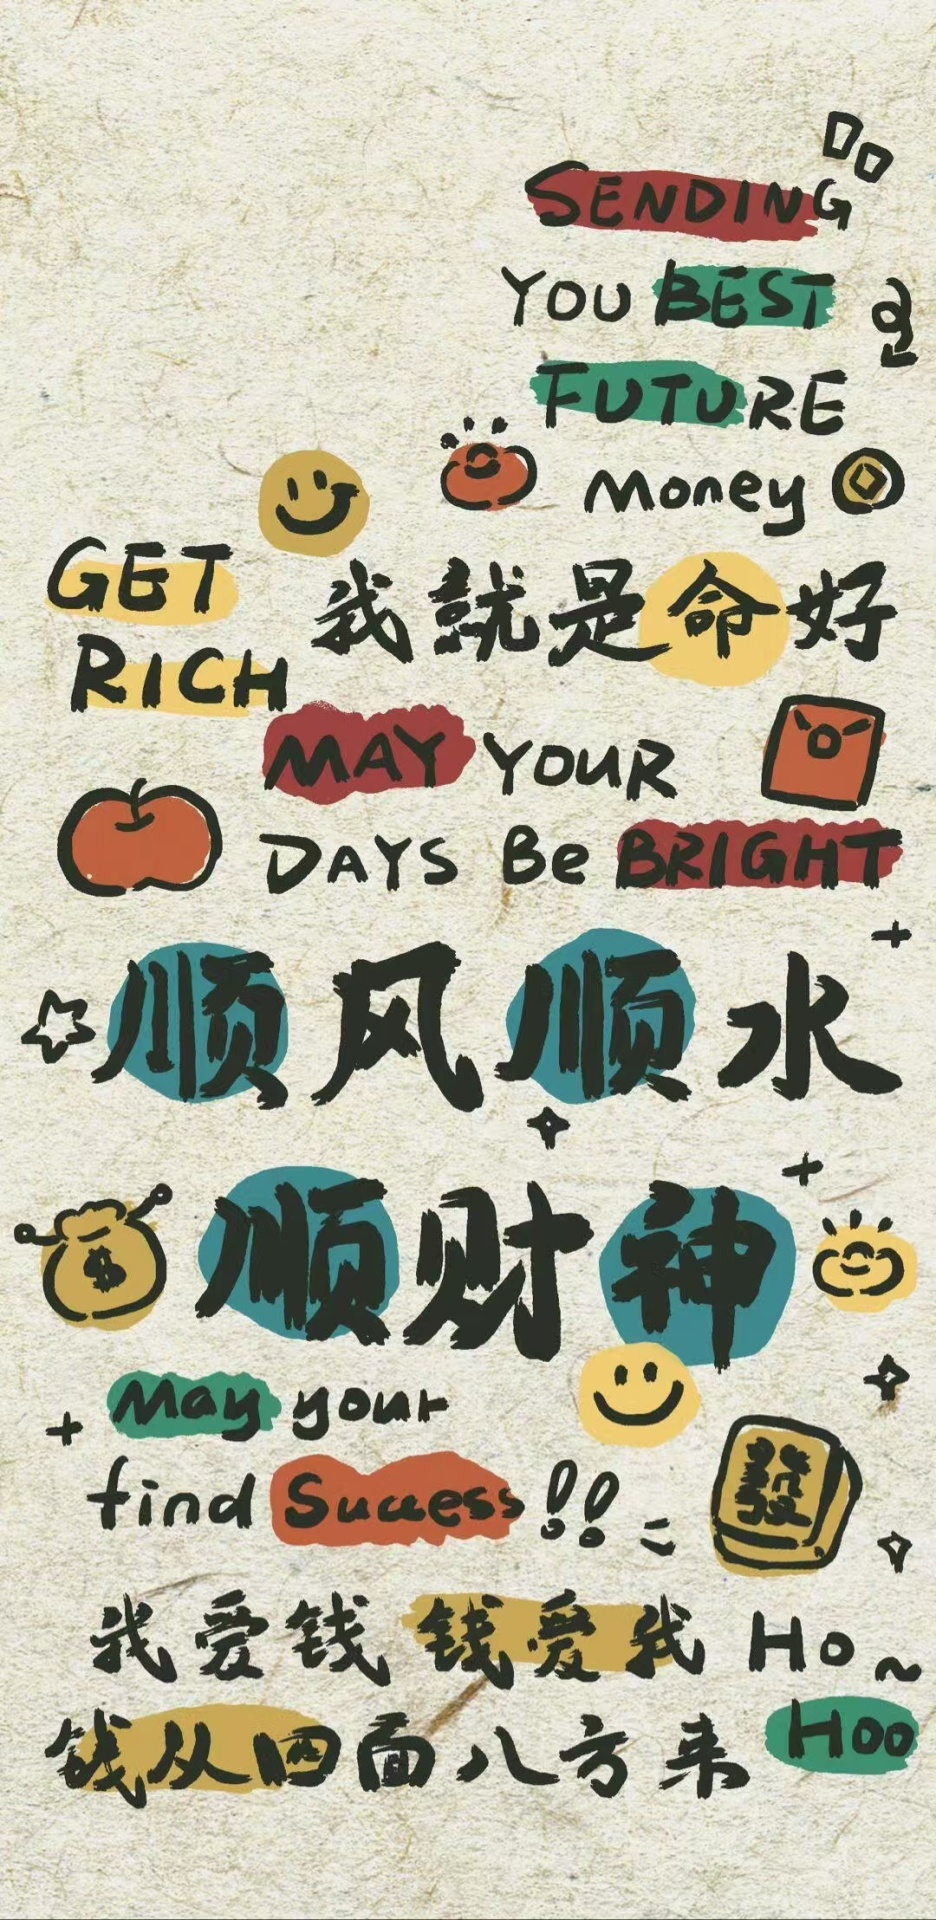 SENDING
YOU BEST
FUTURE
Money
GET
RICH
我就是命好
MAY YOUR
DAYS Be BRIGHT
顺风顺水
$
顺财神
May your
find Success!!
發
我爱钱 钱爱我 Ho~
钱从四面八方来 Hoo